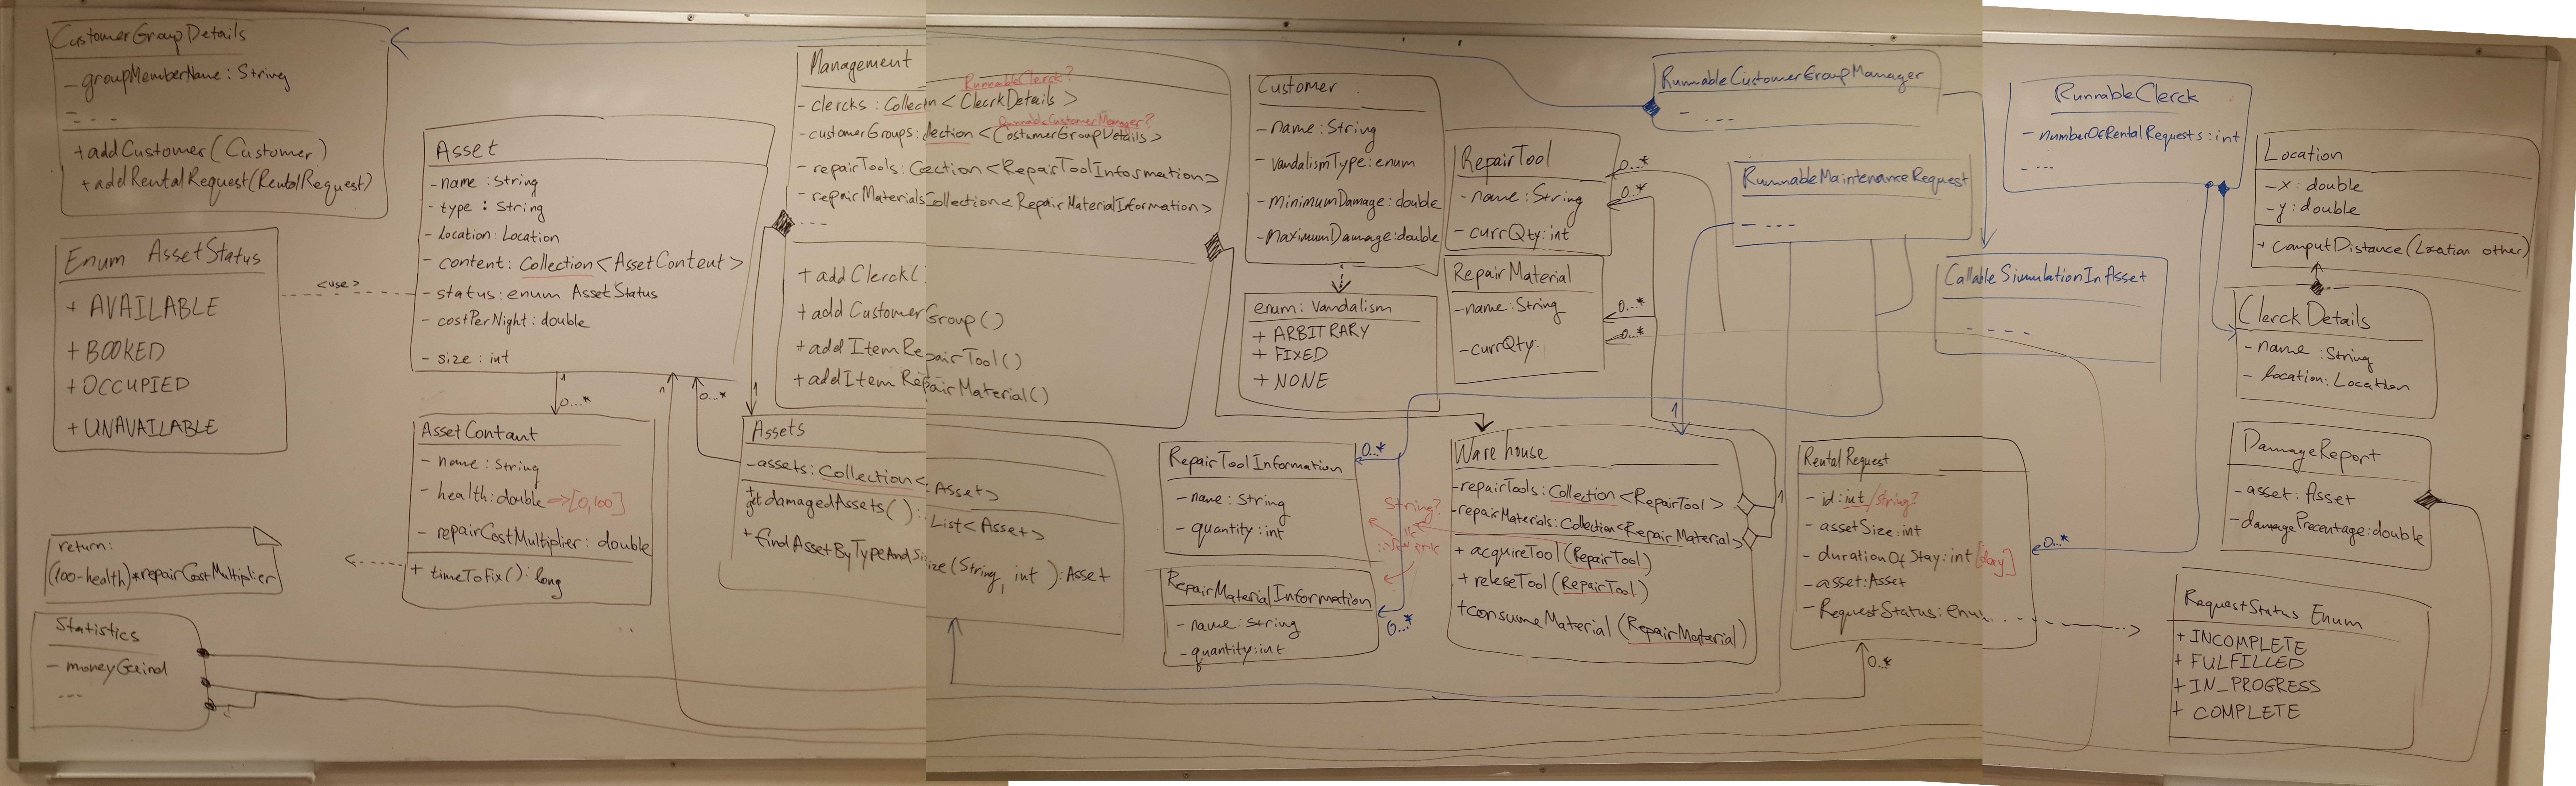 CustomerGroupDetails
- groupMemberName: String
- - - -
+ addCustomer(Customer)
+ addRentalRequest(RentalRequest)
Enum AssetStatus
+ AVAILABLE
+ BOOKED
+ OCCUPIED
+ UNAVAILABLE
<use>
return:
(100-health)*repairCostMultiplier
Statistics
- moneyGeind
- - -
Asset
- name: String
- type: String
- location: Location
- content: Collection<AssetContent>
- status: enum AssetStatus
- costPerNight: double
- size: int
1
0...*
1
0...*
1
AssetContant
- name: String
- health: double =>[0,100]
- repairCostMultiplier: double
+ timeToFix(): long
Management
RunnableClerck?
- clercks: Collectn <ClecrkDetails>
RunnableCustomerManager?
- customerGroups: llection <CostumerGroupDetails>
- repairTools: Cection <RepairToolInformation>
- repairMaterials Collection<RepairMaterialInformation>
- - - -
+ addClerck(
+ addCustomerGroup()
+ addItemRepairTool()
+ addItem RepairMaterial()
Assets
- assets: Collection< Asset>
+ getdamagedAssets(): List<Asset>
+ findAssetByTypeAndSize(String, int): Asset
Customer
- name: String
- vandalismType: enum
- minimumDamage: double
- maximumDamage: double
enum: Vandalism
+ ARBITRARY
+ FIXED
+ NONE
RepairTool
- name: String
- currQty: int
0...*
0...*
RepairMaterial
- name: String
- currQty:
0...*
0...*
RepairToolInformation
- name: String
- quantity: int
0...*
RepairMaterialInformation
- name: String
- quantity: int
0...*
String?
Warehouse
- repairTools: Collection <RepairTool>
- repairMaterials: Collection<Repair Material>
+ acquireTool (RepairTool)
+ releseTool (RepairTool)
+ consumeMaterial (RepairMatarial)
1
1
RunnableCustomerGroupManager
- - - -
RunnableMaintenanceRequest
- - - -
Rental Request
- id: int/string?
- assetSize: int
- durationOfStay: int [day]
- asset: Asset
- RequestStatus: Enum
0...*
0...*
RunnableClerck
- numberOfRentalRequests: int
- - - -
CallableSimulationInAsset
- - - -
Location
- x: double
- y: double
+ computDistance(Location other)
Clerck Details
- name: String
- location: Location
DamageReport
- asset: Asset
- damagePrecentage: double
RequestStatus Enum
+ INCOMPLETE
+ FULFILLED
+ IN_PROGRESS
+ COMPLETE